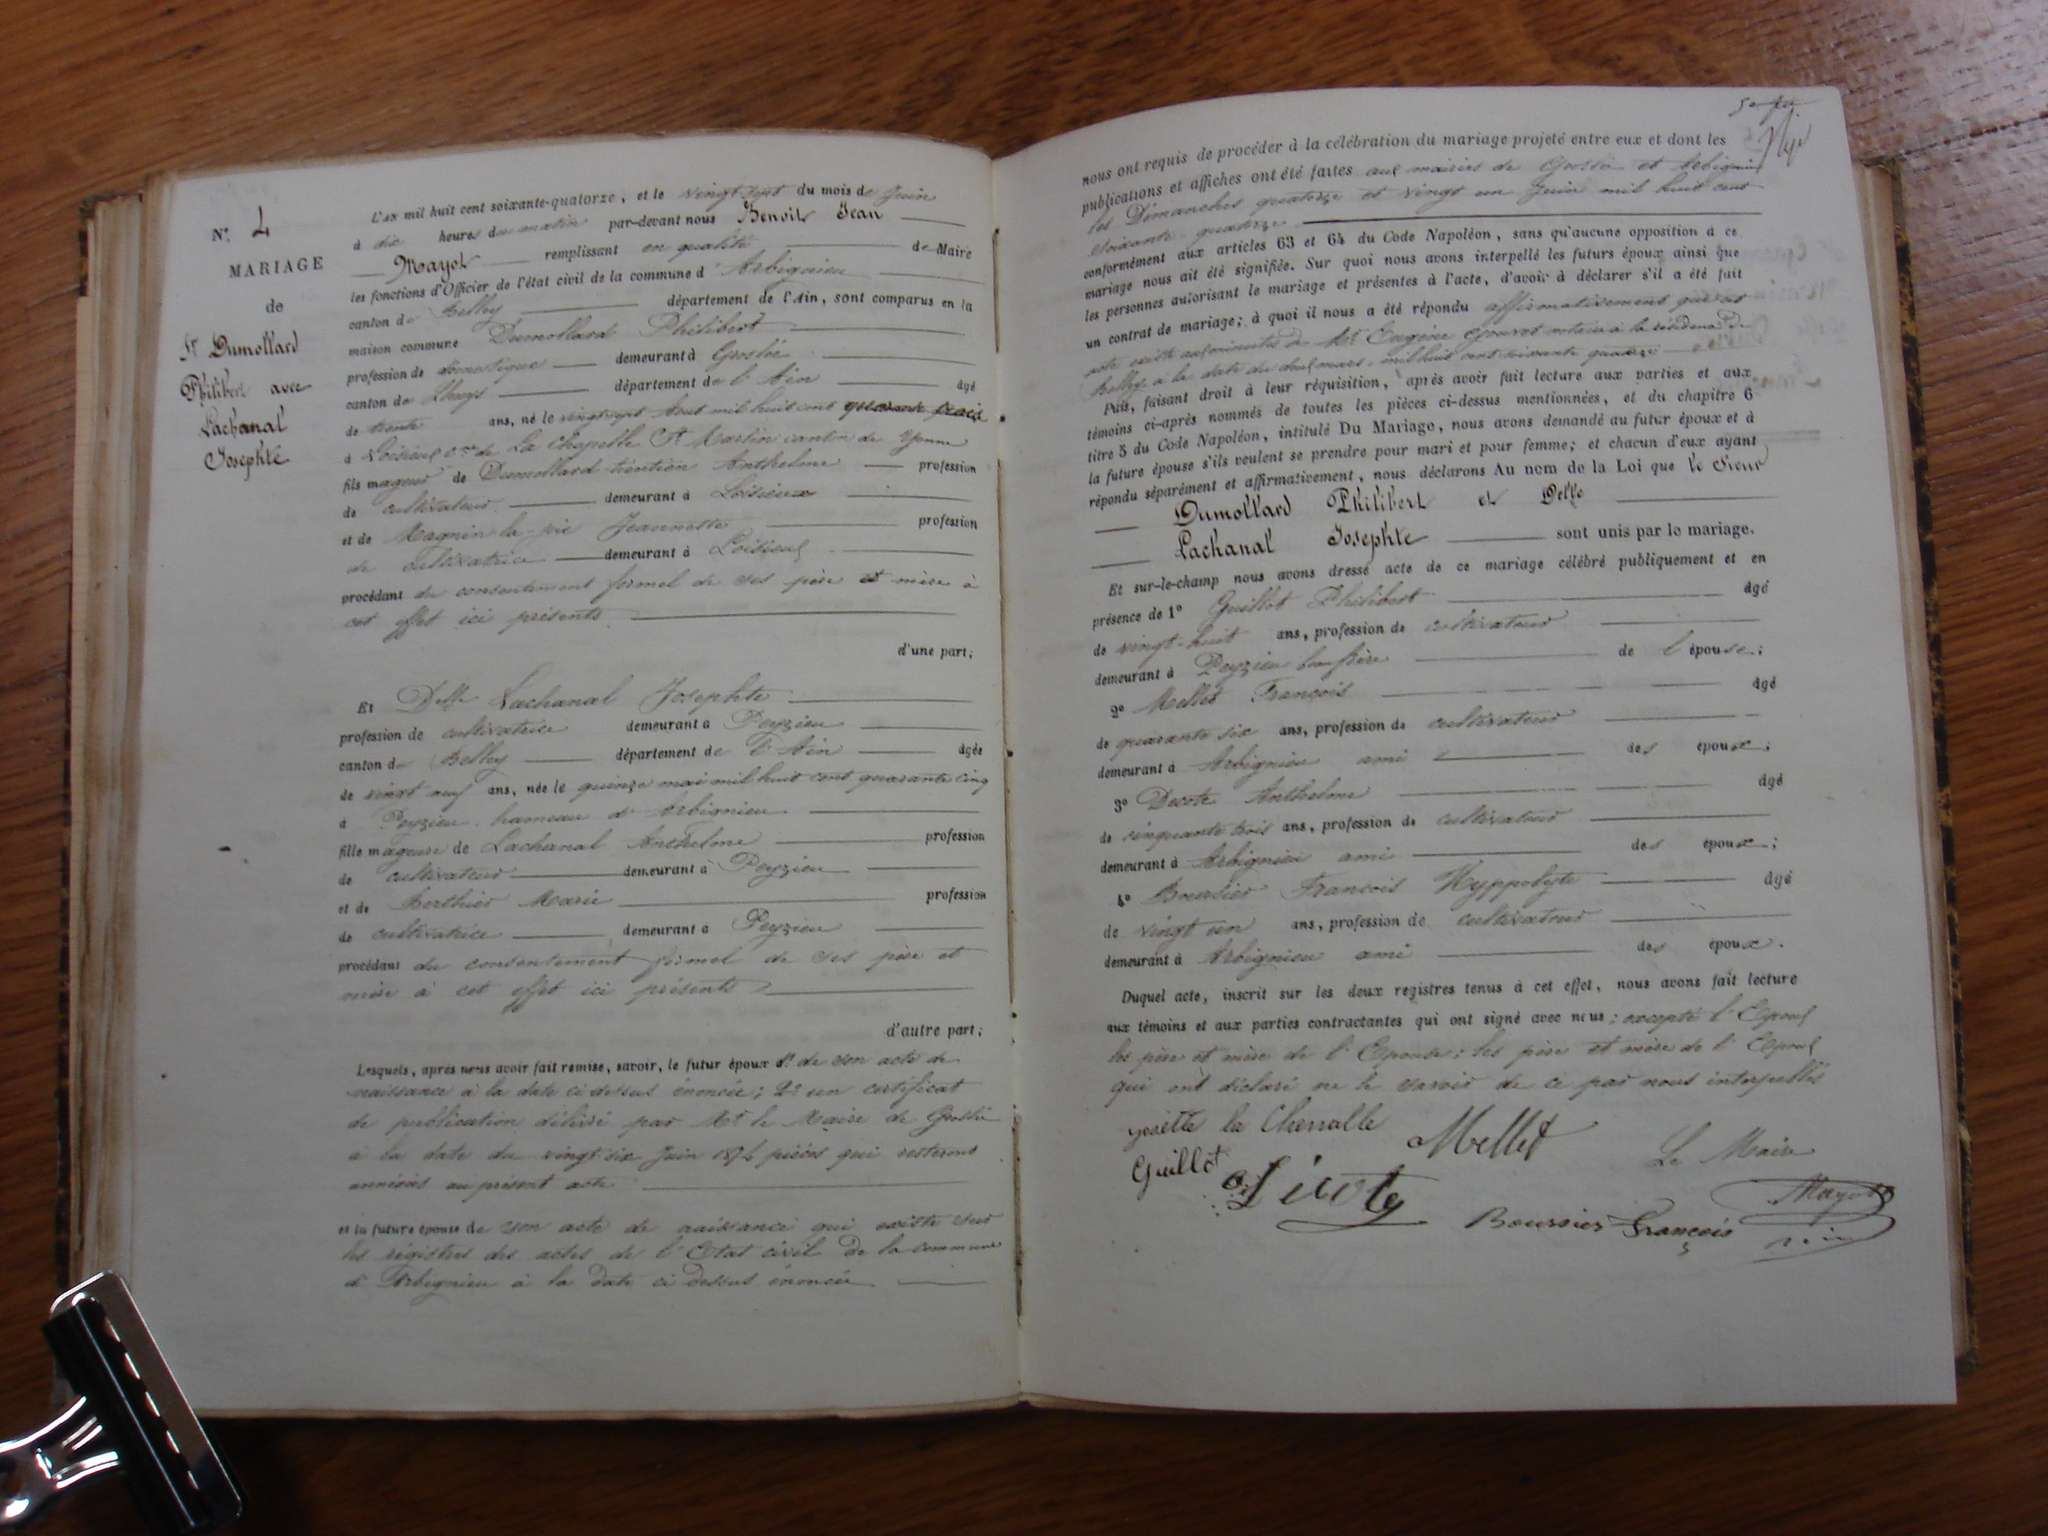 N.º 4
MARIAGE
de
Sr Dumollard
Philibert avec
Lachanal
Josephte
L'AN mil huit cent soixante-quatorze, et le vingt sept du mois de Juin
à dix heures du matin par-devant nous Benoit Jean
Mayot remplissant en qualité de Maire
les fonctions d'Officier de l'état civil de la commune d'Arbignieu
canton de Belley département de l'Ain, sont comparus en la
maison commune Dumollard Philibert
profession de domestique demeurant à Groslée
canton de Lhuys département de l'Ain âgé
de trente ans, né le vingt sept Aout mil huit cent quarante trois
à Loisieux Cne de La Chapelle St Martin canton de Yenne
fils majeur de Dumollard Anthelme profession
de cultivateur demeurant à Loisieux
et de Magnin la Jeannette profession
de cultivatrice demeurant à Loisieux
procédant du consentement formel de ses père et mère à
cet effet ici présents
d'une part;
Et Delle Lachanal Josephte
profession de cultivatrice demeurant à Peyzieu
canton de Belley département de l'Ain âgée
de vingt neuf ans, née le quinze mai mil huit cent quarante cinq
à Peyzieu hameau d'Arbignieu
fille majeure de Lachanal Anthelme profession
de cultivateur demeurant à Peyzieu
et de Berthier Marie profession
de cultivatrice demeurant à Peyzieu
procédant du consentement formel de ses père et
mère à cet effet ici présents
d'autre part;
Lesquels, après nous avoir fait remise, savoir, le futur époux 1º de son acte de
naissance à la date ci dessus énoncée; 2º un certificat
de publication délivré par Mr le Maire de Groslée
à la date du vingt six Juin 1874 pièces qui resteront
annexées au présent acte
et la future épouse de son acte de naissance qui existe sur
les régistres des actes de l'Etat civil de la commune
d'Arbignieu à la date ci dessus énoncée
nous ont requis de procéder à la célébration du mariage projeté entre eux et dont les
publications et affiches ont été faites aux mairies de Groslée et Arbignieu
les Dimanches quatorze et vingt un Juin mil huit cent
soixante quatorze
conformément aux articles 63 et 64 du Code Napoléon, sans qu'aucune opposition à ce
mariage nous ait été signifiée. Sur quoi nous avons interpellé les futurs époux ainsi que
les personnes autorisant le mariage et présentes à l'acte, d'avoir à déclarer s'il a été fait
un contrat de mariage; à quoi il nous a été répondu affirmativement que cet
acte existe aux minutes de Mt Eugène notaire à la résidence de
Belley à la date du mars mil huit cent soixante quatorze
Puis, faisant droit à leur réquisition, après avoir fait lecture aux parties et aux
témoins ci-après nommés de toutes les pièces ci-dessus mentionnées, et du chapitre 6
titre 5 du Code Napoléon, intitulé Du Mariage, nous avons demandé au futur époux et à
la future épouse s'ils veulent se prendre pour mari et pour femme; et chacun d'eux ayant
répondu séparément et affirmativement, nous déclarons Au nom de la Loi que le Sieur
Dumollard Philibert et Delle
Lachanal Josephte sont unis par le mariage.
Et sur-le-champ nous avons dressé acte de ce mariage célébré publiquement et en
présence de 1º Guillot Philibert âgé
de vingt-huit ans, profession de cultivateur
demeurant à Peyzieu beau frère de l'épouse;
2º Mellet François âgé
de quarante six ans, profession de cultivateur
demeurant à Arbignieu ami des époux;
3º Decote Anthelme âgé
de cinquante trois ans, profession de cultivateur
demeurant à Arbignieu ami des époux;
4º Boursier François Hyppolyte âgé
de vingt un ans, profession de cultivateur
demeurant à Arbignieu ami des époux.
Duquel acte, inscrit sur les deux registres tenus à cet effet, nous avons fait lecture
aux témoins et aux parties contractantes qui ont signé avec nous; excepté l'Epoux
les père et mère de l'Epouse; les père et mère de l'Epoux
qui ont déclaré ne le savoir de ce par nous interpellés
Mellet
Le Maire
Guillot
Décote
Boursier François
Mayot